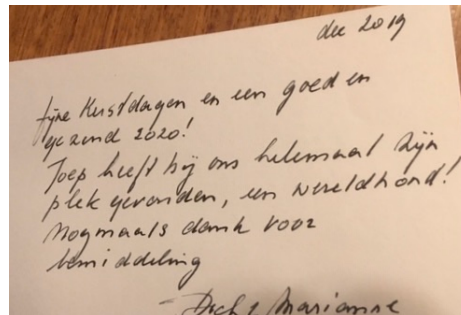 dec 2019
Fijne Kerstdagen en een goed en
gezond 2020!
Joep heeft bij ons helemaal zijn
plek gevonden, een wereldhond!
Nogmaals dank voor
bemiddeling
Marianne